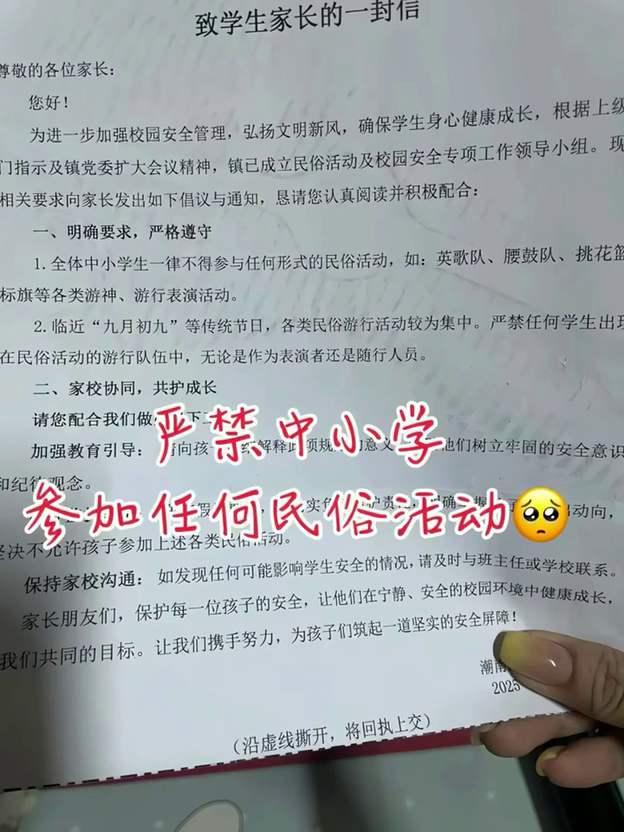 致学生家长的一封信
尊敬的各位家长：
您好！
为进一步加强校园安全管理，弘扬文明新风，确保学生身心健康成长，根据上级
门指示及镇党委扩大会议精神，镇已成立民俗活动及校园安全专项工作领导小组。现
相关要求向家长发出如下倡议与通知，恳请您认真阅读并积极配合：
一、明确要求，严格遵守
1.全体中小学生一律不得参与任何形式的民俗活动，如：英歌队、腰鼓队、挑花篮
标旗等各类游神、游行表演活动。
2.临近“九月初九”等传统节日，各类民俗游行活动较为集中。严禁任何学生出现
在民俗活动的游行队伍中，无论是作为表演者还是随行人员。
二、家校协同，共护成长
请您配合我们做
严禁中小学
加强教育引导：向孩子 解释此项规 意义 他们树立牢固的安全意识
和纪律观念。
参加任何民俗活动🥺
动向，
坚决不允许孩子参加上述各类民俗活动。
保持家校沟通：如发现任何可能影响学生安全的情况，请及时与班主任或学校联系。
家长朋友们，保护每一位孩子的安全，让他们在宁静、安全的校园环境中健康成长，
我们共同的目标。让我们携手努力，为孩子们筑起一道坚实的安全屏障！
潮南
2025
（沿虚线撕开，将回执上交）